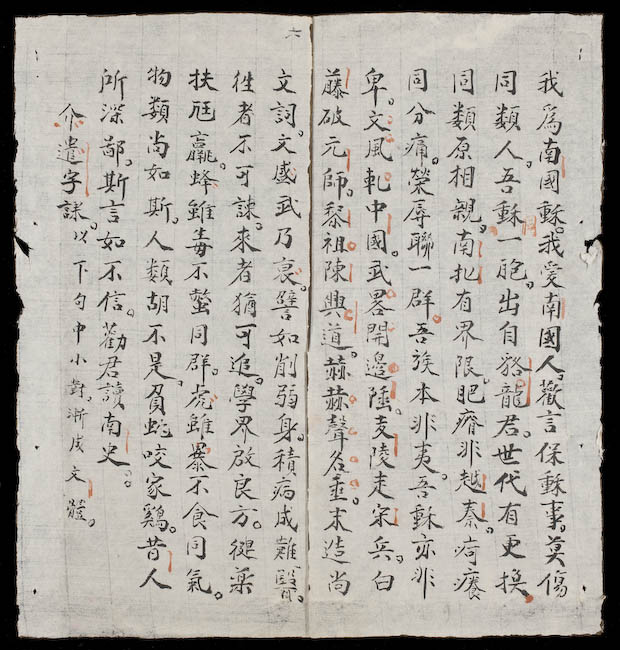 六
我爲南國穌。我愛南國人。勸言保穌事。莫傷
同類人。吾穌一胞。出自貉龍君。世代有更換
同類原相親。南北有界限。肥瘠非越秦。痾癢
同分痛。榮辱聯一群。吾族本非夷。吾穌亦非
卑。文風軋中國。武畧開邊陲。支陵走宋兵。白
藤破元師。黎祖陳興道。赫赫聲名垂。末造尚
文詞。文盛武乃衰。譬如削弱身。積病成難醫。
徃者不可諫。來者猶可追。學界啟良方。藥
扶尫羸。蜂雖毒不螫同群。虎雖暴不食同氣。
物類尚如斯。人類胡不是。負蛇咬家鷄。昔人
所深鄙。斯言如不信。勸君讀南史。
介遣字課。以下句中小對。漸成文體。